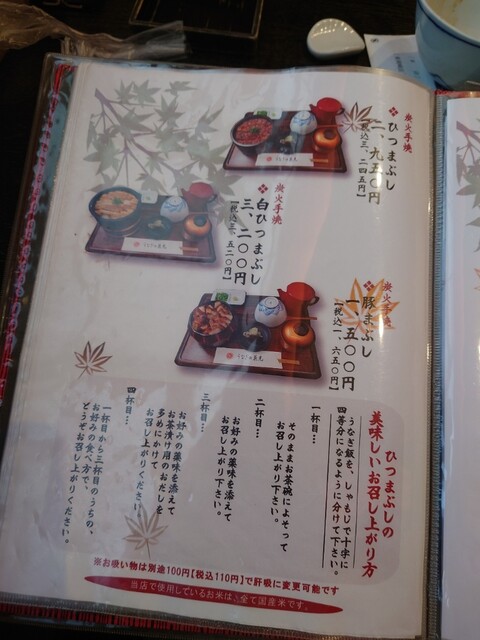 炭火手焼
ひつまぶし
二、九五〇円
【税込三、二四五円】
炭火手焼
白ひつまぶし
三、二〇〇円
【税込三、五二〇円】
炭火手焼
豚まぶし
一、五〇〇円
【税込一、六五〇円】
ひつまぶしの
美味しいお召し上がり方
うなぎ飯を、しゃもじで十字に
四等分になるように分けて下さい。
一杯目…
そのままお茶碗によそって
お召し上がり下さい。
二杯目…
お好みの薬味を添えて
お召し上がり下さい。
三杯目…
お好みの薬味を添えて
お茶漬け用のおだしを
多めにかけて
お召し上がりください。
四杯目…
一杯目から三杯目のうちの、
お好みの食べ方で、
どうぞお召し上がりください。
※お吸い物は別途100円【税込110円】で肝吸に変更可能です
当店で使用しているお米は、全て国産米です。